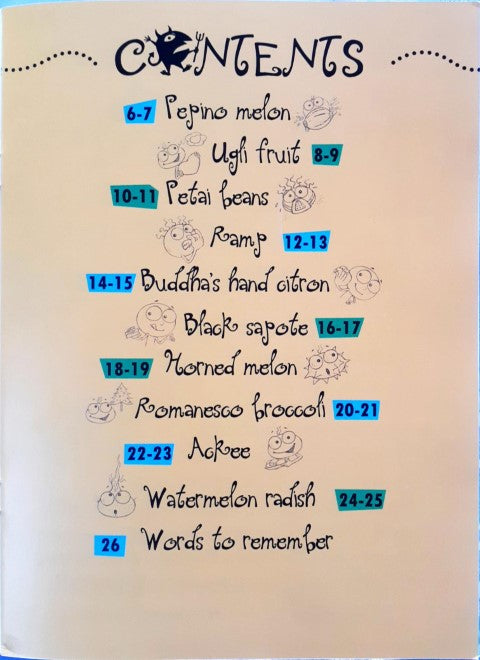 CONTENTS
6-7 Pepino melon
Ugli fruit 8-9
10-11 Petai beans
Ramp 12-13
14-15 Buddha's hand citron
Black sapote 16-17
18-19 Horned melon
Romanesco broccoli 20-21
22-23 Ackee
Watermelon radish 24-25
26 Words to remember